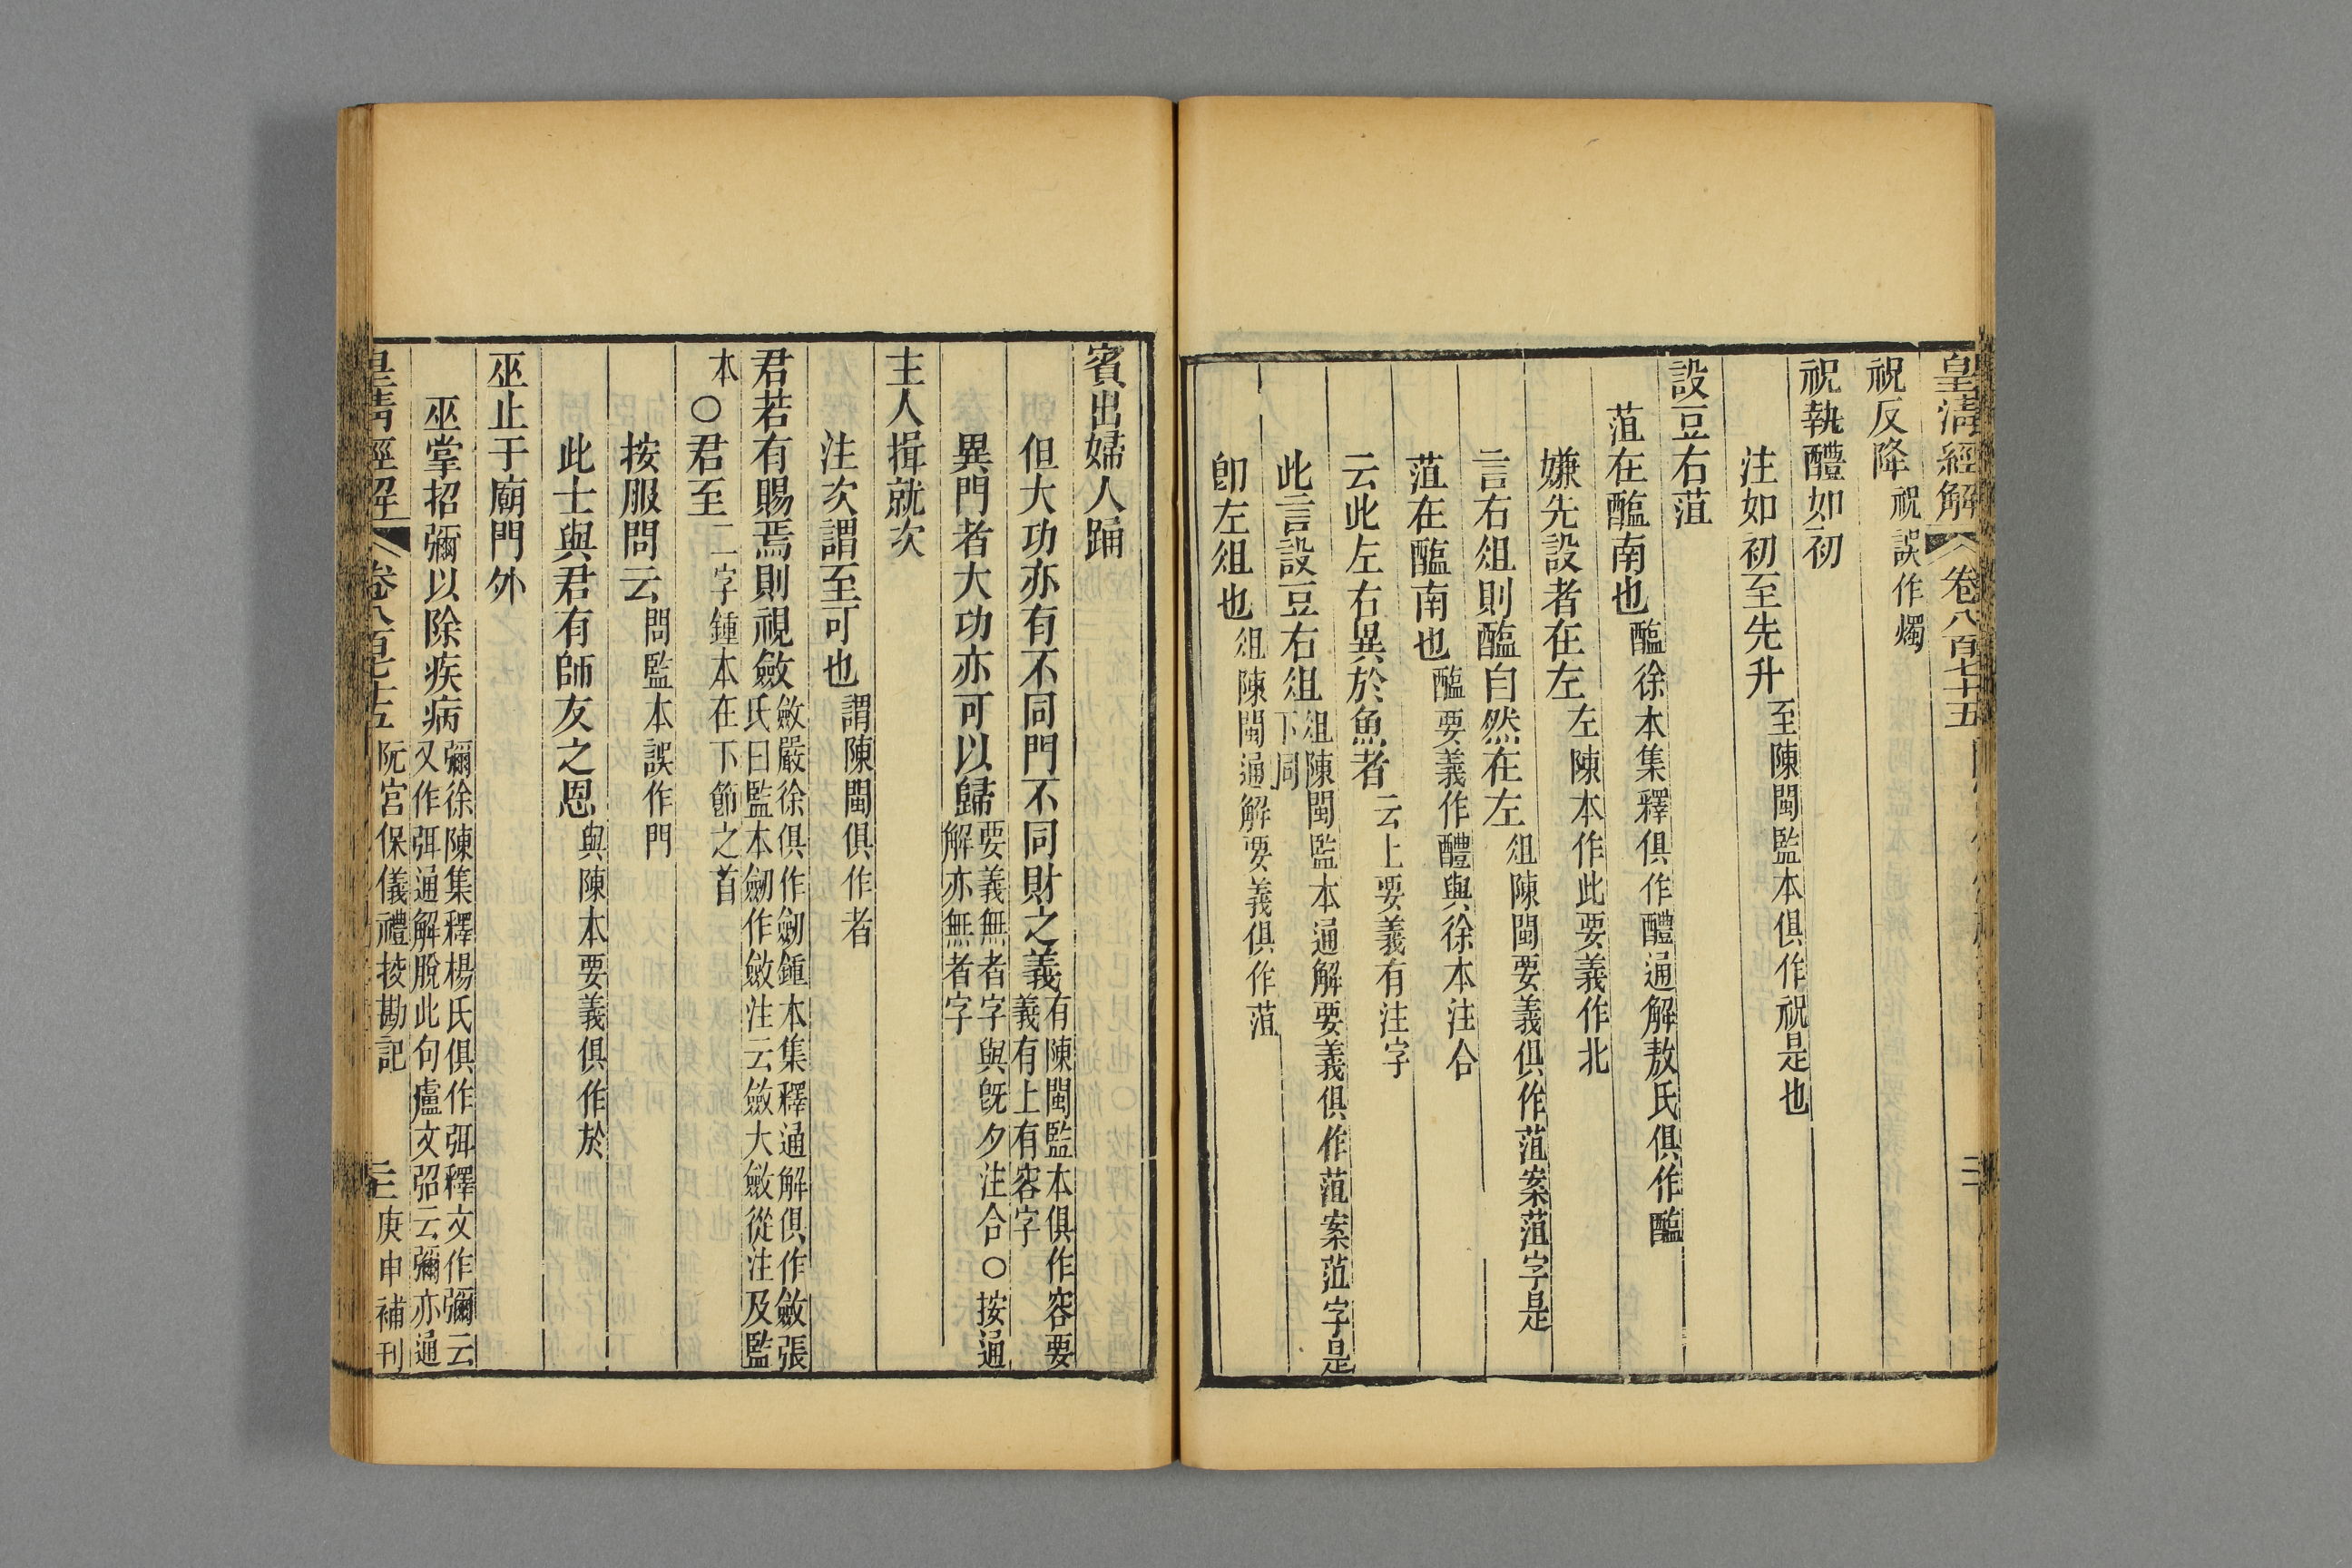 皇清經解 卷八百七十五
三
祝反降祝誤作燭
祝執醴如初
注如初至先升至陳閩監本俱作祝是也
設豆右菹
菹在醢南也醢徐本集釋俱作醴通解敖氏俱作醢
嫌先設者在左左陳本作此要義作北
言右俎則醢自然在左俎陳閩要義俱作菹案菹字是
菹在醢南也醢要義作醴與徐本注合
云此左右異於魚者云上要義有注字
此言設豆右俎俎陳閩監本通解要義俱作菹案菹字是
下同
卽左俎也俎陳閩通解要義俱作菹
賓出婦人踊
但大功亦有不同門不同財之義有陳閩監本俱作容要
義有上有容字
異門者大功亦可以歸要義無者字與旣夕注合○按通
解亦無者字
主人揖就次
注次謂至可也謂陳閩俱作者
君若有賜焉則視斂斂嚴徐俱作劒鍾本集釋通解俱作斂張
氏曰監本劒作斂注云斂大斂從注及監
本○君至二字鍾本在下節之首
按服問云問監本誤作門
此士與君有師友之恩與陳本要義俱作於
巫止于廟門外
巫掌招彌以除疾病彌徐陳集釋楊氏俱作弭釋文作彌云
又作弭通解脫此句盧文弨云彌亦通
皇清經解 卷八百七十五 阮宮保儀禮挍勘記 三 庚申補刊